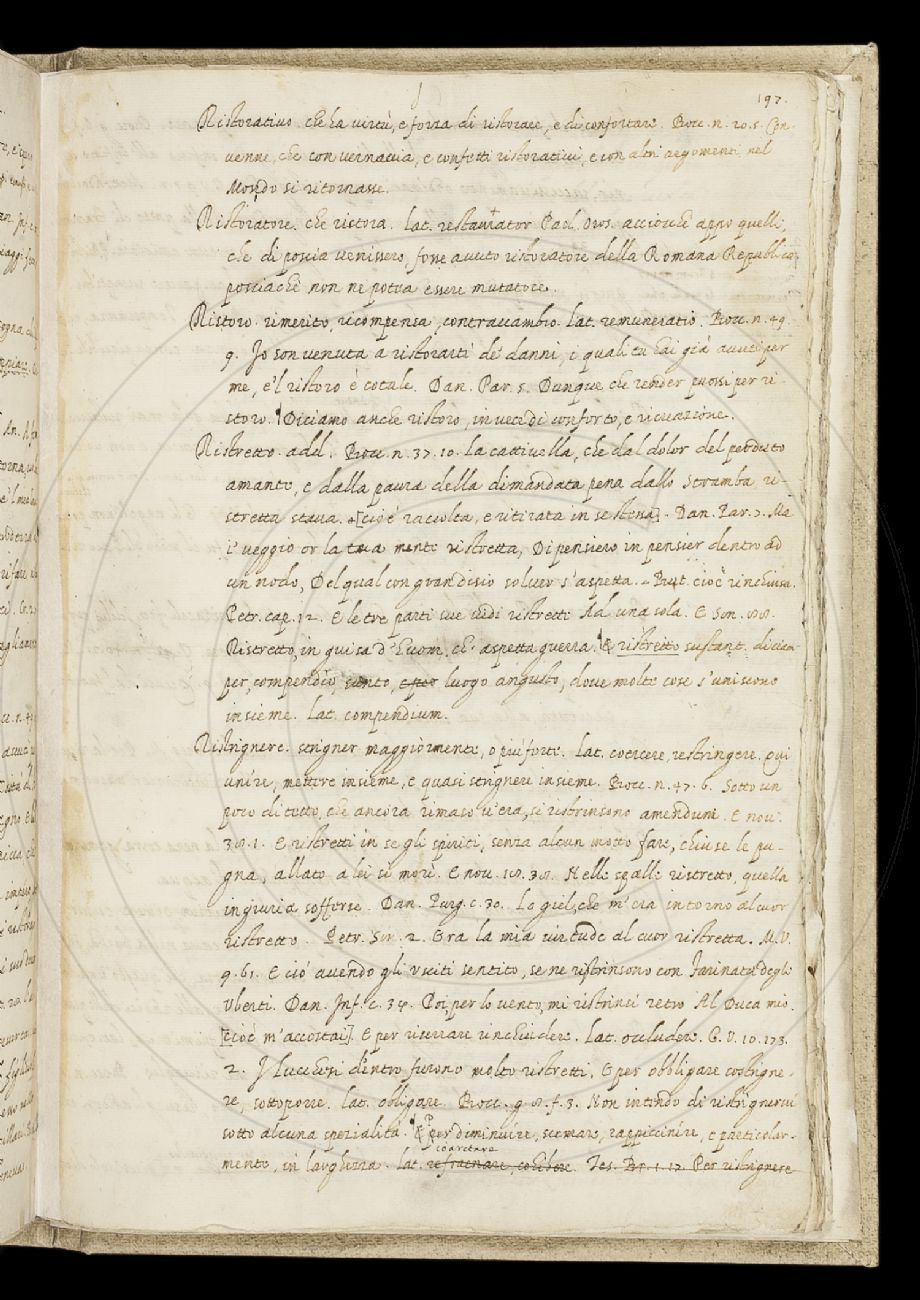 197.
Ristorativo che ha virtù, e forza di ristorare, e di confortare. Bocc. n. 20. 5. Con-
venne, che con vernaccia, e confetti ristorativi, e con altri argomenti nel
Mondo si ritornasse.
Ristoratore. che ristora. lat. restaurator Paol. Oros. acciochè appo quelli,
che di poscia venissero, fosse avuto ristoratore della Romana Repubblica,
posciachè non ne potea essere mutatore.
Ristoro. rimerito, ricompensa, contraccambio. lat. remuneratio. Bocc. n. 49.
9. Io son venuta a ristorarti de' danni, i quali tu hai già avuti per
me, e 'l ristoro è cotale. Dan. Par. 5. Dunque che render puossi per ri-
storo. Diciamo anche ristoro, in vece di conforto, e ricreazione.
Ristretto. add. Bocc. n. 37. 10. La cattivella, che dal dolor del perduto
amante, e dalla paura della dimandata pena dallo Stramba ri-
stretta stava. [cioè raccolta, e ritirata in se stessa]. Dan. Par. 7. Ma
i' veggio or la tua mente ristretta, Di pensiero in pensier dentro ad
un nodo, Del qual con gran disio solver s'aspetta. cioè rinchiusa.
Petr. cap. 12. E le tre parti sue vidi ristrette Ad una sola. E Son. 88.
Ristretto, in guisa d'huom, ch' aspetta guerra. & ristretto sustant. diciam
per, compendio, sunto, e per luogo angusto, dove molte cose s'uniscono
insieme. lat. compendium.
Ristrignere. strigner maggiormente, o più forte. lat. coercere, restringere. qui
unire, mettere insieme, e quasi strignere insieme. Bocc. n. 47. 6. Sotto un
poco di tetto, che ancora rimaso v'era, si ristrinsono amenduni. E nov.
38. 1. E ristretti in se gli spiriti, senza alcun motto fare, chiuse le pu-
gna, allato a lei si morì. E nov. 18. 38. Nelle spalle ristretto, quella
ingiuria sofferse. Dan. Purg. c. 30. Lo giel, che m'era intorno al cuor
ristretto. Petr. Son. 2. Era la mia virtude al cuor ristretta. M. V.
9. 61. E ciò avendo gli Usciti sentito, se ne ristrinsono con Farinata degli
Uberti. Dan. Inf. c. 34. Poi, per lo vento, mi ristrinsi retro Al Duca mio.
[cioè m'accostai]. E per riserrare rinchiudere. lat. occludere. G. V. 10. 173.
2. I Lucchesi d'entro furono molto ristretti, E per obbligare costrigne-
re, sottoporre. lat. obligare. Bocc. g. 8. f. 3. Non intendo di ristrignervi
sotto alcuna spezialità. & per diminuire, scemare, rappiccinire, e particolar-
coarctare
mente, in larghezza. lat. refraenare, cohibere. Tes. Br. 1. 17. Per ristrignere